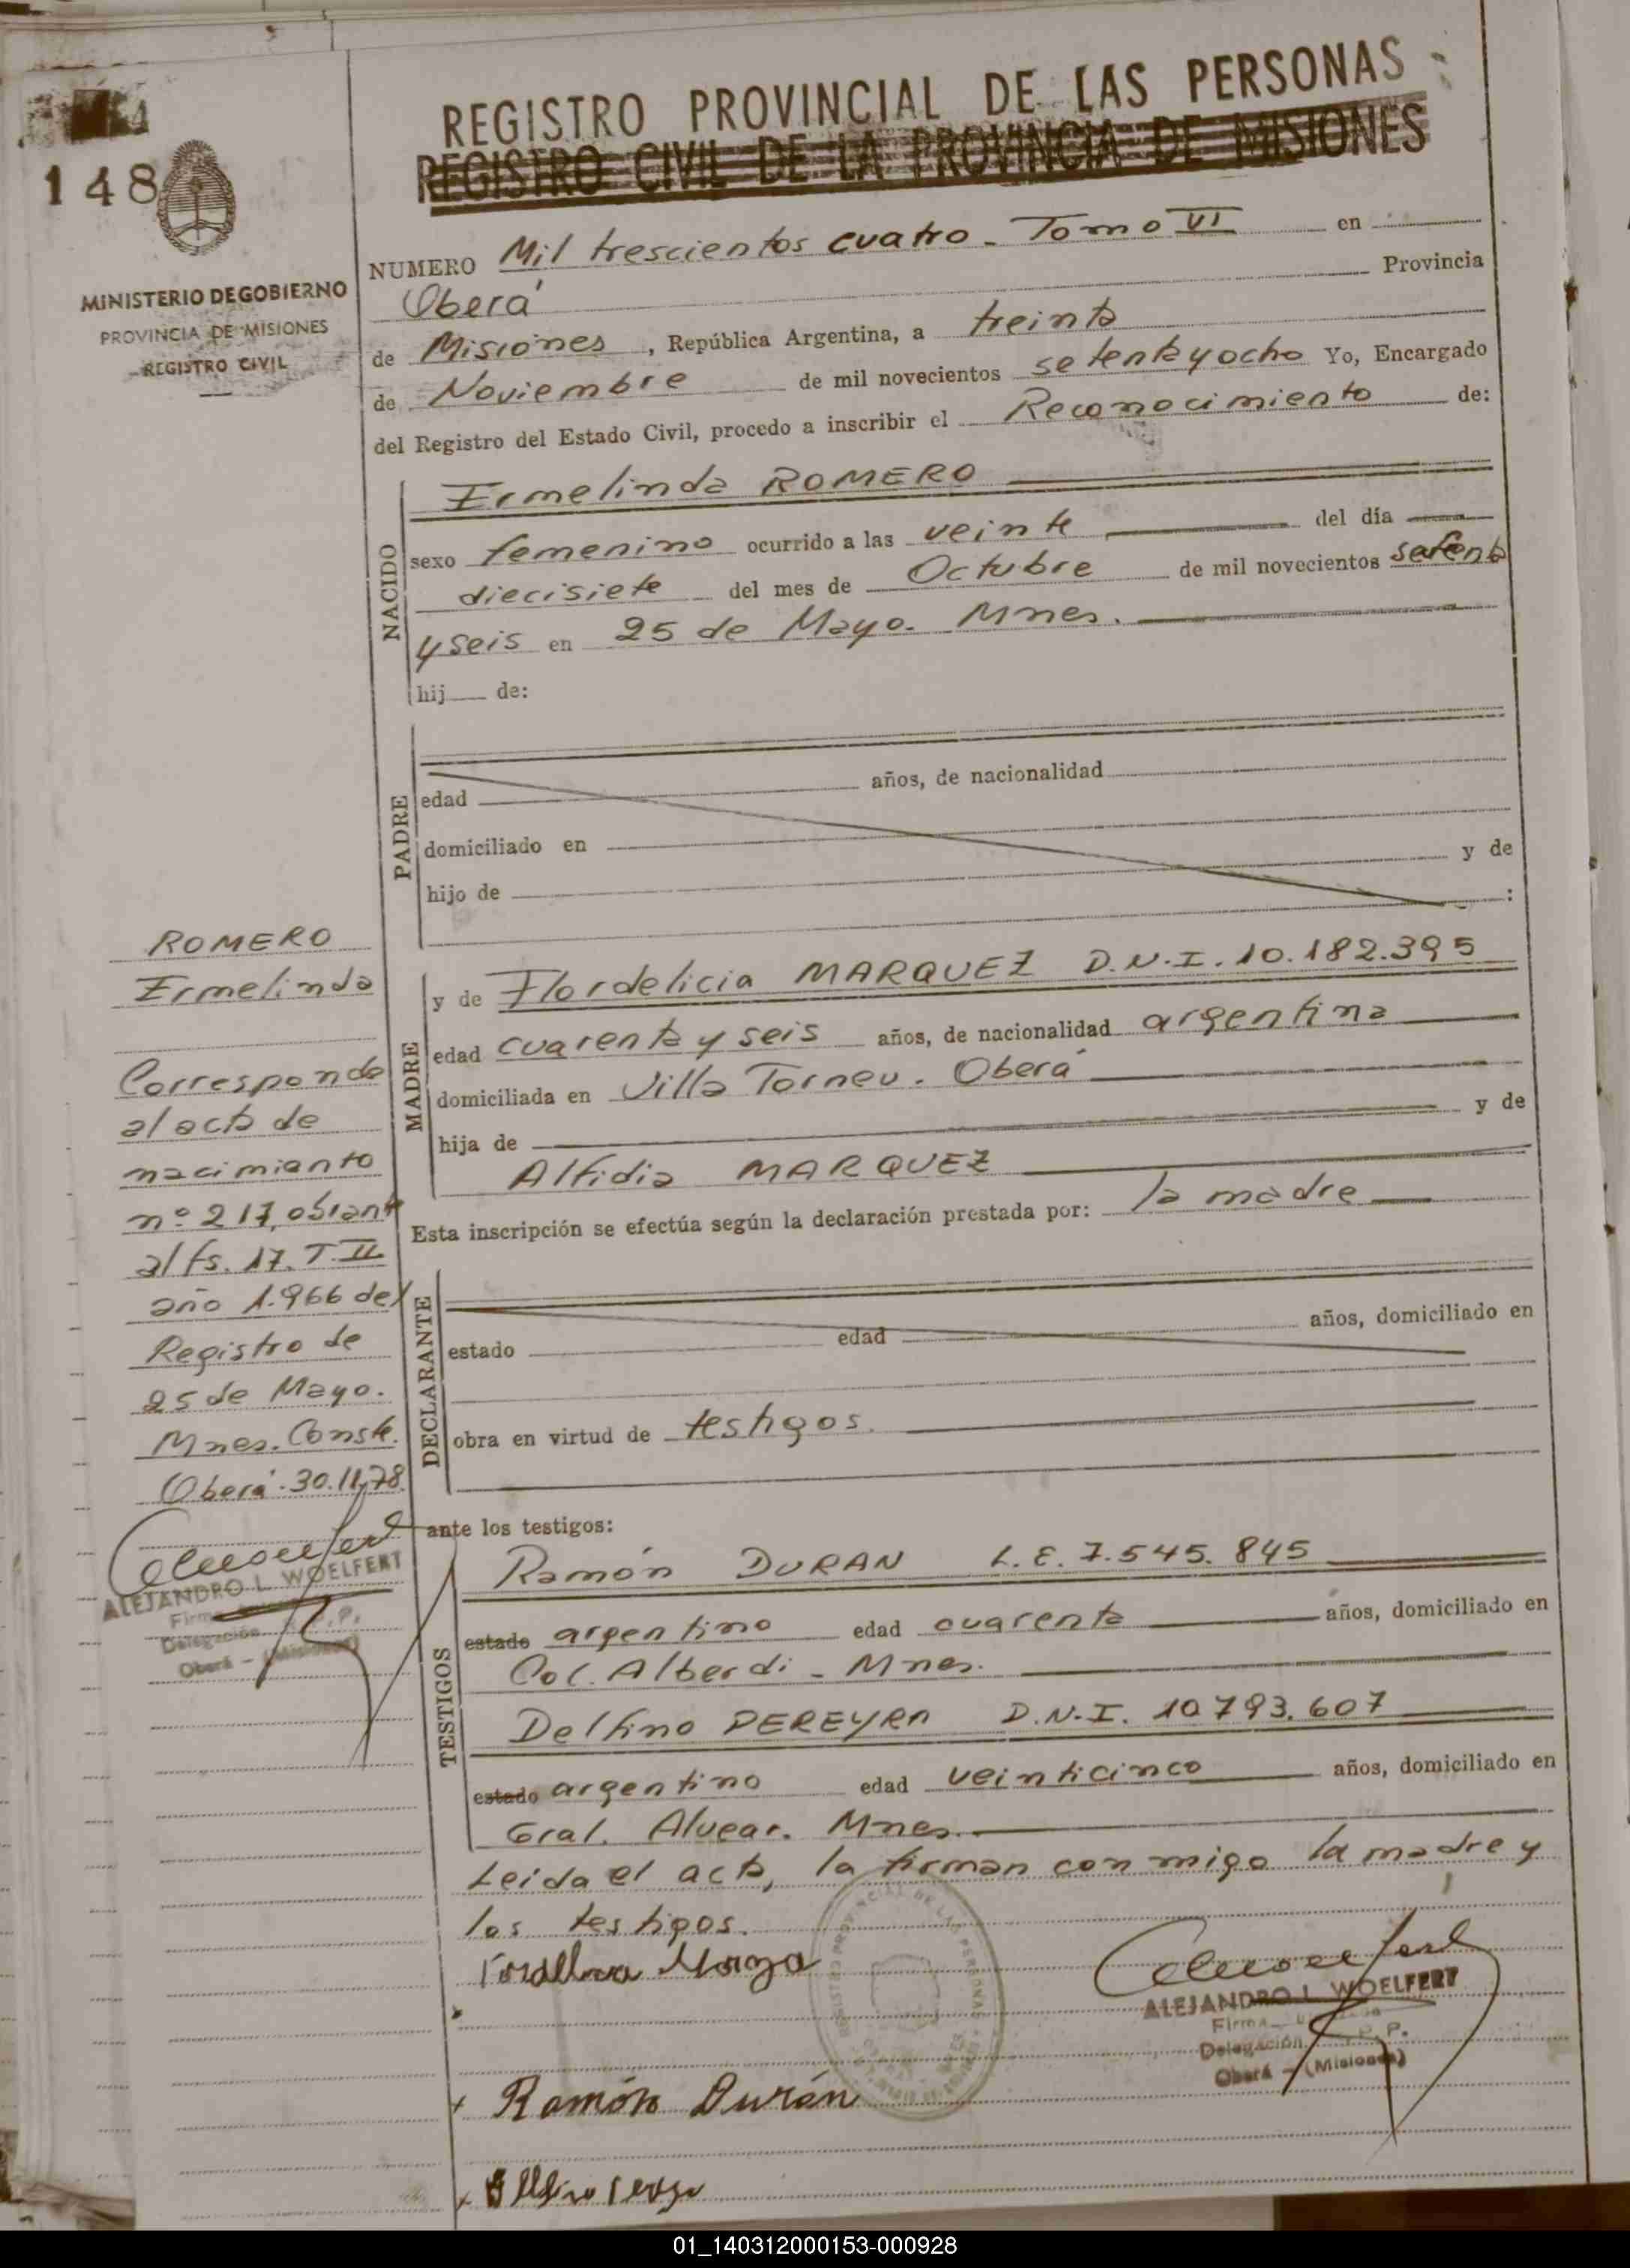 REGISTRO PROVINCIAL DE LAS PERSONAS
REGISTRO CIVIL DE LA PROVINCIA DE MISIONES
148
MINISTERIO DE GOBIERNO
PROVINCIA DE MISIONES
REGISTRO CIVIL
NUMERO Mil trescientos cuatro - Tomo VI en
Oberá Provincia
de Misiones, República Argentina, a treinta
de Noviembre de mil novecientos setenta y ocho Yo, Encargado
del Registro del Estado Civil, procedo a inscribir el Reconocimiento de:
NACIDO
Ermelinda ROMERO
sexo femenino ocurrido a las veinte del día
diecisiete del mes de Octubre de mil novecientos sesenta
y seis en 25 de Mayo. Mnes.
hij de:
PADRE
edad años, de nacionalidad
domiciliado en
hijo de y de
:
MADRE
y de Flordelicia MARQUEZ D.N.I. 10.182.395
edad cuarenta y seis años, de nacionalidad argentina
domiciliada en Villa Torneu. Oberá
hija de y de
Alfidia MARQUEZ
Esta inscripción se efectúa según la declaración prestada por: la madre
DECLARANTE
estado edad años, domiciliado en
obra en virtud de testigos.
ante los testigos:
TESTIGOS
Ramón DURAN L.E. 7.545.845
estado argentino edad cuarenta años, domiciliado en
Col. Alberdi - Mnes.
Delfino PEREYRA D.N.I. 10.793.607
estado argentino edad veinticinco años, domiciliado en
Gral. Alvear. Mnes.
Leida el acta, la firman conmigo la madre y
los testigos.
ALEJANDRO L. WOELFERT
Delegación
Oberá - (Misiones)
Ramón Durán
ROMERO
Ermelinda
Corresponde
al acta de
nacimiento
nº 217, obrante
al fs. 17. T. II
año 1.966 del
Registro de
25 de Mayo.
Mnes. Conste.
Oberá. 30.11.78
ALEJANDRO L. WOELFERT
Delegación
Oberá - (Misiones)
01_140312000153-000928